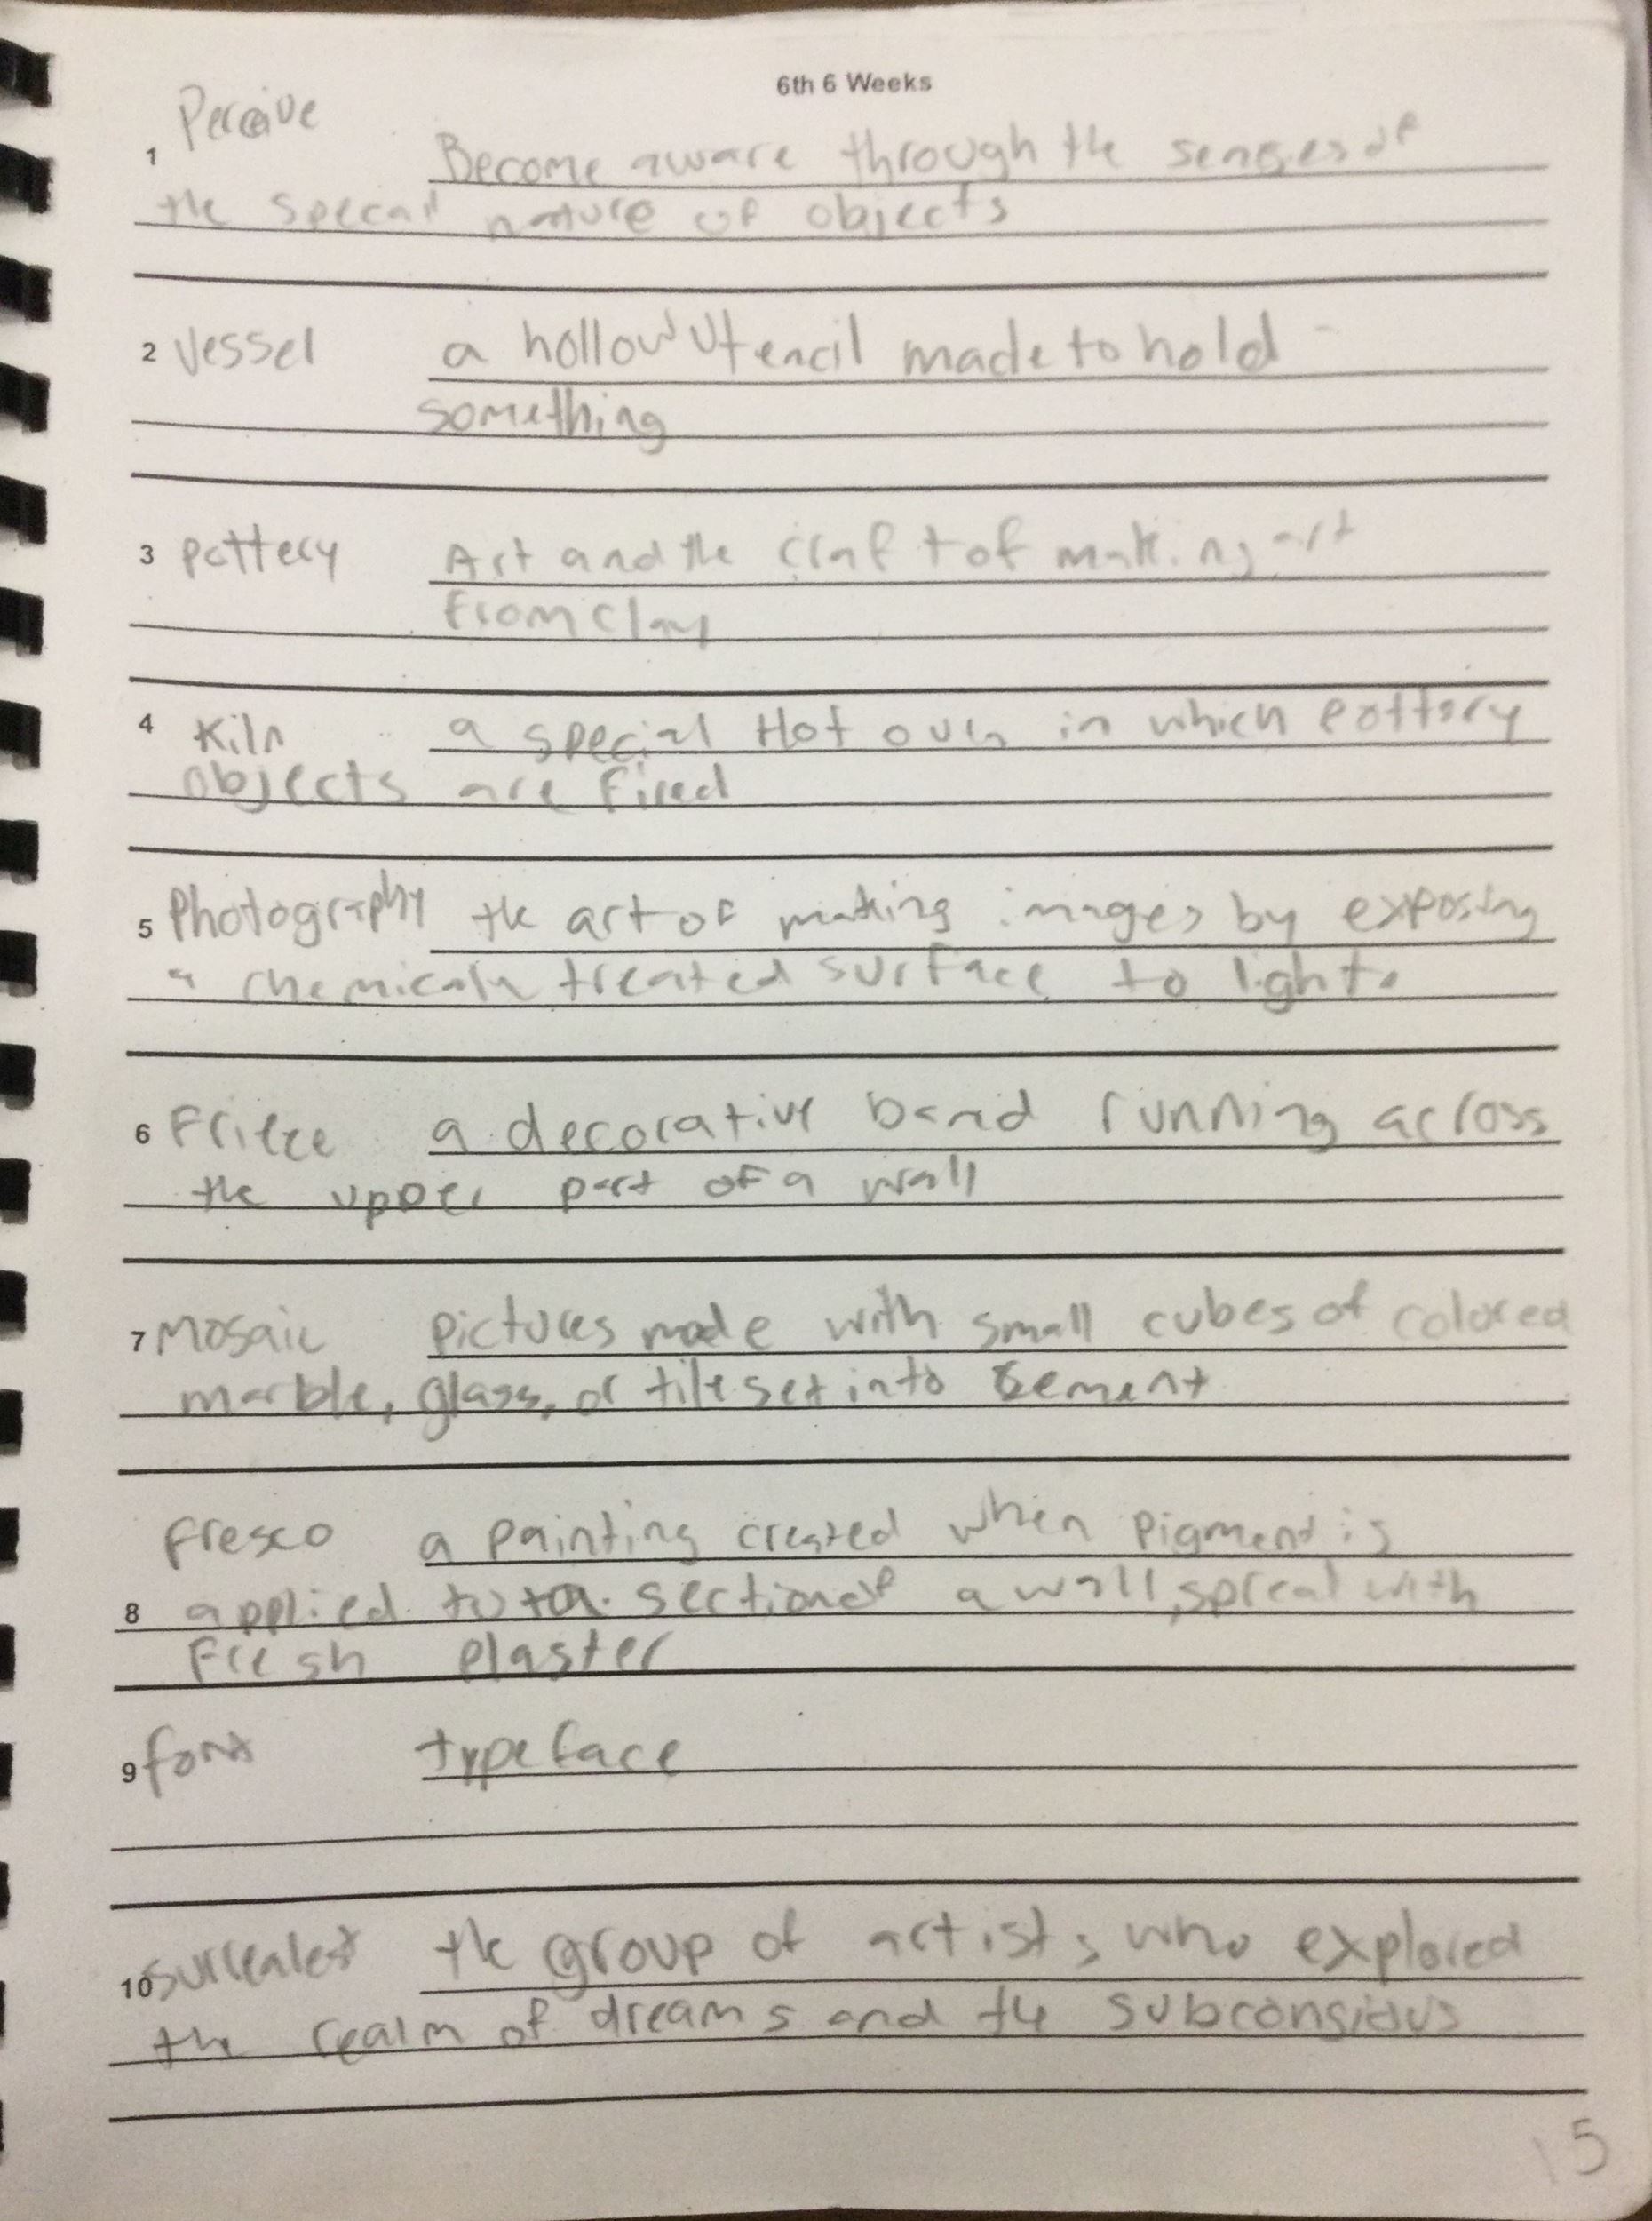 6th 6 Weeks
1 Perceive Become aware through the senses of
the specail nature of objects
2 Vessel a hollow Utencil made to hold
something
3 pottery Art and the craft of making art
from clay
4 Kiln a special Hot oven in which pottery
objects are fired
5 Photography the art of making images by exposing
a chemicaly treated surface to light.
6 Frieze a decorative band running across
the upper part of a wall
7 Mosaic pictures made with small cubes of colored
marble, glass, or tile set into cement
Fresco a painting created when pigment is
8 applied to a section of a wall, spread with
Fresh plaster
9 font typeface
10 surrealest the group of artists who explored
the realm of dreams and the subconsious
15